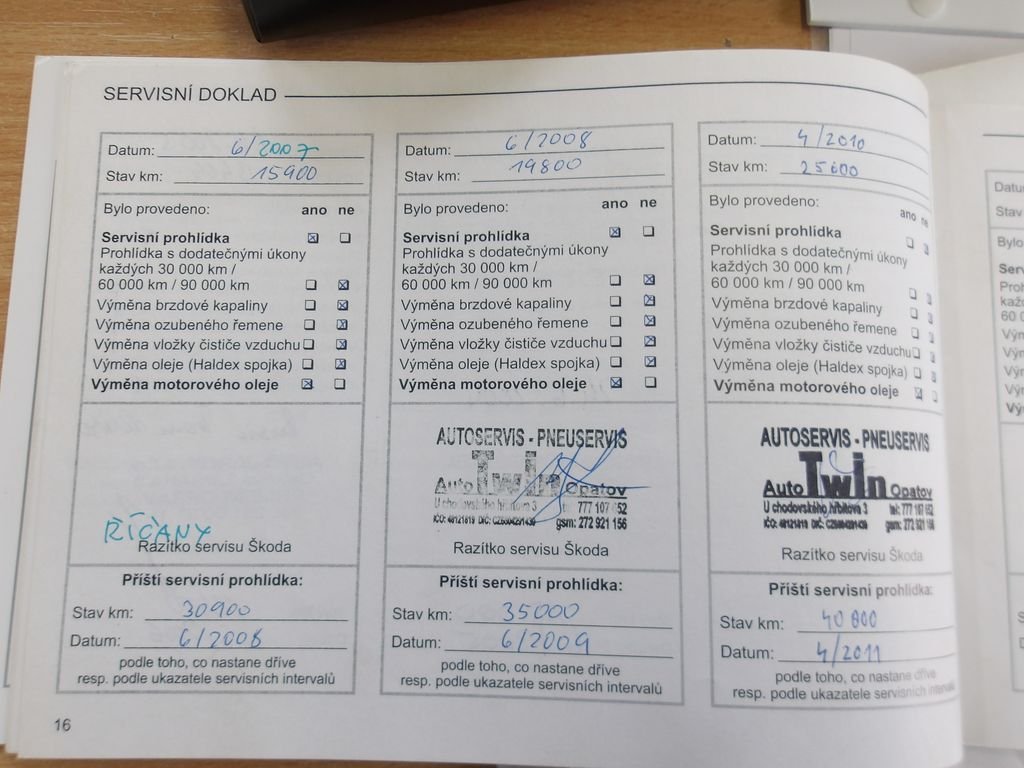 SERVISNÍ DOKLAD
Datum: 6/2007
Stav km: 15900
Bylo provedeno: ano ne
Servisní prohlídka
Prohlídka s dodatečnými úkony
každých 30 000 km /
60 000 km / 90 000 km
Výměna brzdové kapaliny
Výměna ozubeného řemene
Výměna vložky čističe vzduchu
Výměna oleje (Haldex spojka)
Výměna motorového oleje
ŘÍČANY
Razítko servisu Škoda
Příští servisní prohlídka:
Stav km: 30900
Datum: 6/2008
podle toho, co nastane dříve
resp. podle ukazatele servisních intervalů
16
Datum: 6/2008
Stav km: 19800
Bylo provedeno: ano ne
Servisní prohlídka
Prohlídka s dodatečnými úkony
každých 30 000 km /
60 000 km / 90 000 km
Výměna brzdové kapaliny
Výměna ozubeného řemene
Výměna vložky čističe vzduchu
Výměna oleje (Haldex spojka)
Výměna motorového oleje
AUTOSERVIS - PNEUSERVIS
Auto Twin Opatov
U chodovského hřbitova 3
gsm: 272 921 156
Razítko servisu Škoda
Příští servisní prohlídka:
Stav km: 35000
Datum: 6/2009
podle toho, co nastane dříve
resp. podle ukazatele servisních intervalů
Datum: 4/2010
Stav km: 25000
Bylo provedeno: ano ne
Servisní prohlídka
Prohlídka s dodatečnými úkony
každých 30 000 km /
60 000 km / 90 000 km
Výměna brzdové kapaliny
Výměna ozubeného řemene
Výměna vložky čističe vzduchu
Výměna oleje (Haldex spojka)
Výměna motorového oleje
AUTOSERVIS - PNEUSERVIS
Auto Twin Opatov
U chodovského hřbitova 3
Razítko servisu Škoda
Příští servisní prohlídka:
Stav km: 40 000
Datum: 4/2011
podle toho, co nastane dříve
resp. podle ukazatele servisních intervalů